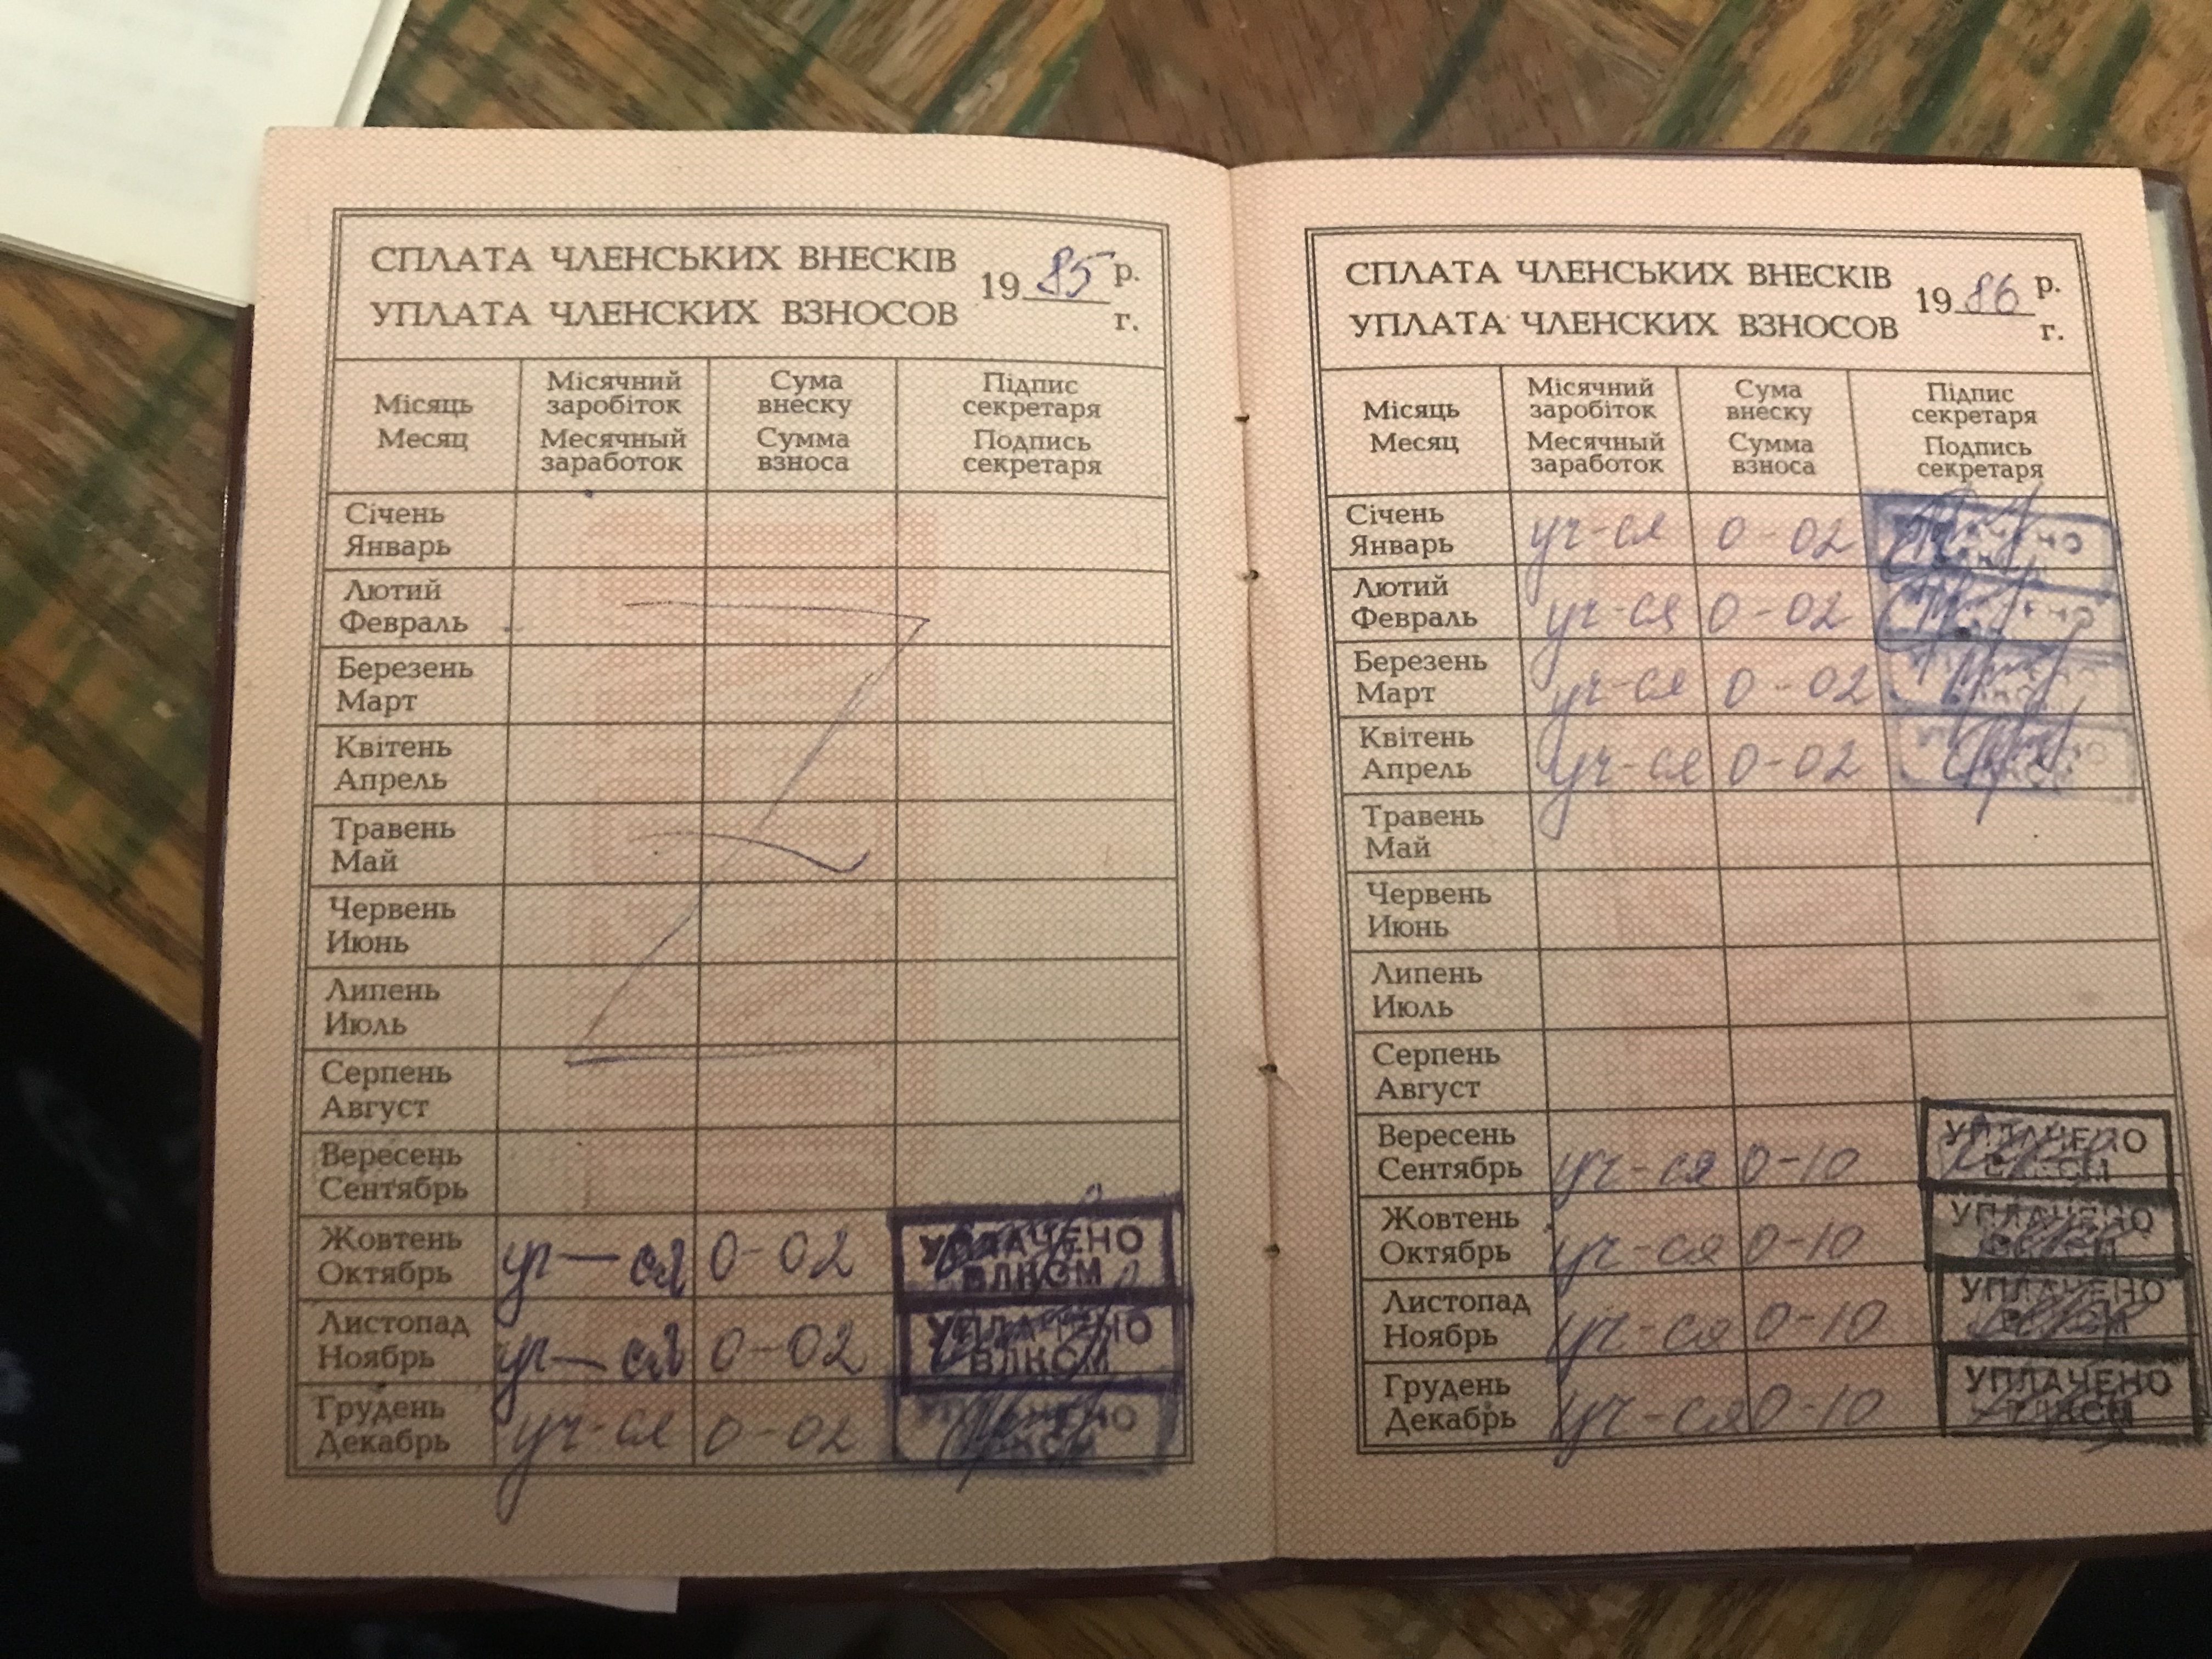 СПЛАТА ЧЛЕНСЬКИХ ВНЕСКІВ 1985 р.
УПЛАТА ЧЛЕНСКИХ ВЗНОСОВ г.
Місяць
Месяц
Місячний
заробіток
Месячный
заработок
Сума
внеску
Сумма
взноса
Підпис
секретаря
Подпись
секретаря
Січень
Январь
Лютий
Февраль
Березень
Март
Квітень
Апрель
Травень
Май
Червень
Июнь
Липень
Июль
Серпень
Август
Вересень
Сентябрь
Жовтень
Октябрь
уч-ся 0-02
УПЛАЧЕНО
ВЛКСМ
Листопад
Ноябрь
уч-ся 0-02
УПЛАЧЕНО
ВЛКСМ
Грудень
Декабрь
уч-ся 0-02
УПЛАЧЕНО
ВЛКСМ
СПЛАТА ЧЛЕНСЬКИХ ВНЕСКІВ 1986 р.
УПЛАТА ЧЛЕНСКИХ ВЗНОСОВ г.
Місяць
Месяц
Місячний
заробіток
Месячный
заработок
Сума
внеску
Сумма
взноса
Підпис
секретаря
Подпись
секретаря
Січень
Январь
уч-ся 0-02
УПЛАЧЕНО
Лютий
Февраль
уч-ся 0-02
Березень
Март
уч-ся 0-02
Квітень
Апрель
уч-ся 0-02
Травень
Май
Червень
Июнь
Липень
Июль
Серпень
Август
Вересень
Сентябрь
уч-ся 0-10
УПЛАЧЕНО
ВЛКСМ
Жовтень
Октябрь
уч-ся 0-10
УПЛАЧЕНО
Листопад
Ноябрь
уч-ся 0-10
УПЛАЧЕНО
Грудень
Декабрь
уч-ся 0-10
УПЛАЧЕНО
ВЛКСМ